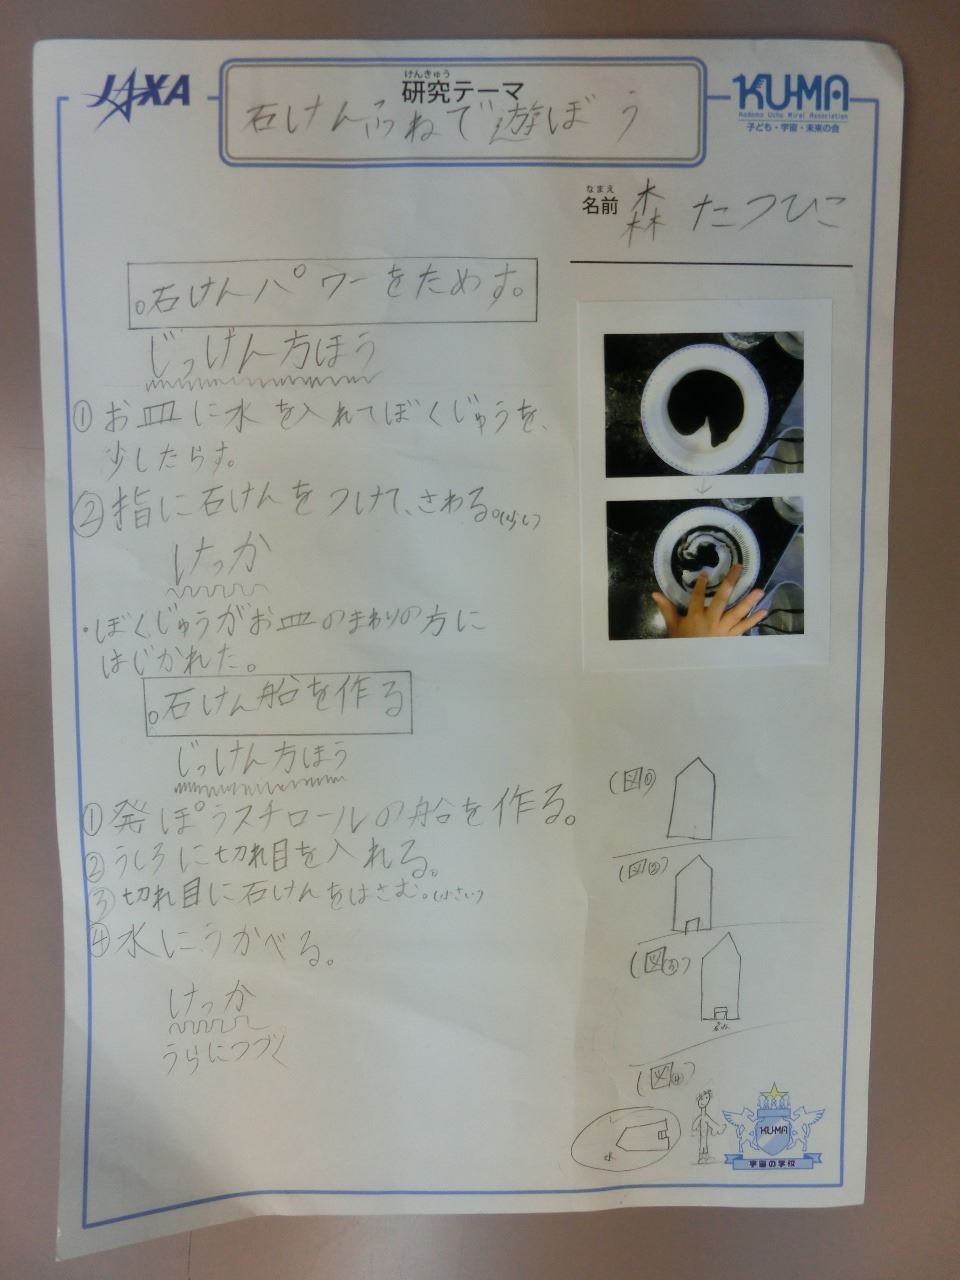 JAXA
けんきゅう
研究テーマ
石けんふねで遊ぼう
KU-MA
Kodomo Uchu Mirai Association
子ども・宇宙・未来の会
なまえ
名前 森 たつひこ
○石けんパワーをためす。
じっけん方ほう
① お皿に水を入れてぼくじゅうを、
少したらす。
② 指に石けんをつけて、さわる。
けっか
・ぼくじゅうがお皿のまわりの方に
はじかれた。
↓
○石けん船を作る
じっけん方ほう
① 発ぽうスチロールの船を作る。
② うしろに切れ目を入れる。
③ 切れ目に石けんをはさむ。(小さい)
④ 水にうかべる。
けっか
うらにつづく
(図①)
(図②)
(図③)
石けん
(図④)
水
KU-MA
宇宙の学校